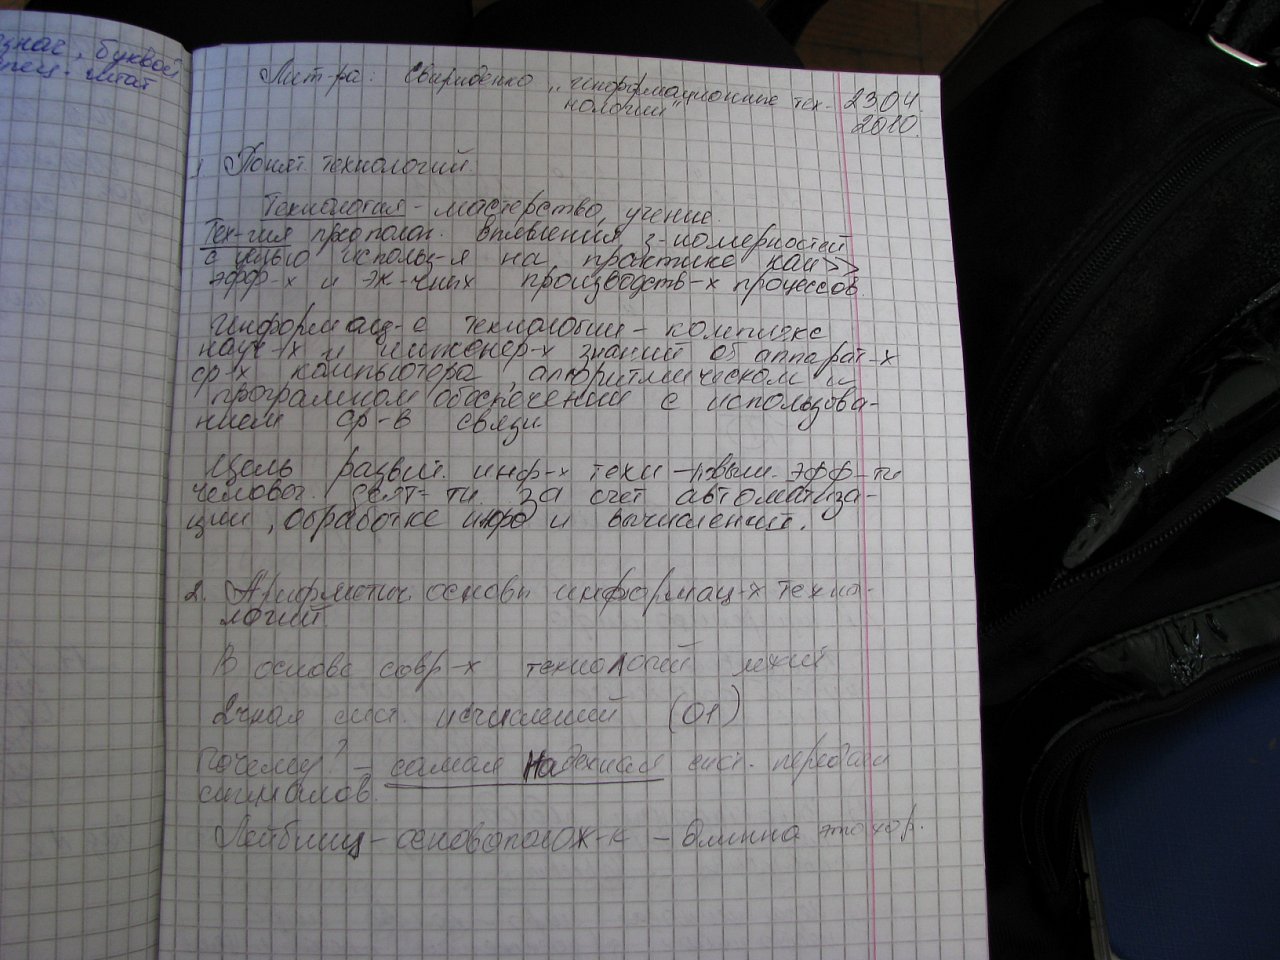 знач, буквой
Лит-ра: Свириденко „информационные тех- 23.04
нологии" 2010
1 Понят. технологий.
Технология - мастерство, учение.
Тех-гия предполаг. выявления з-номерностей
с целью использ-я на практике наи>>
эфф-х и эк-чных производств-х процессов.
Информац-е технологии - комплекс
науч-х и инженер-х знаний об аппарат-х
ср-х компьютера, алгоритмическом и
программном обеспечении с использова-
нием ср-в связи
Цель развит. инф-х техн - повыш. эфф-ти
человеч. деят-ти за счет автоматиза-
ции, обработке инфо и вычислений.
2. Арифметич. основы информац-х техно-
логий
В основе совр-х технологий лежит
2чная сист. исчислений (01)
Почему? - самая надежная сист. передачи
сигналов.
Лейбниц - основополож-к -